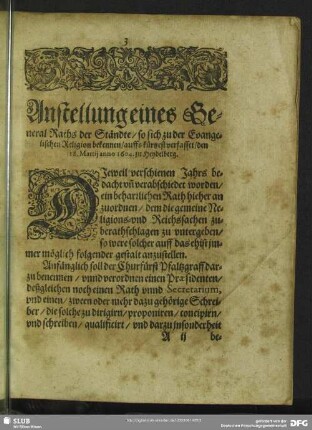 3
Anstellung eines Ge-
neral Raths der Ständte / so sich zu der Evange-
lischen Religion bekennen / auffs kürtzest verfasset / den
18. Martij anno 1604. zu Heydelberg.
DJeweil verschienen Jahrs be-
dacht vn̄ verabschiedet worden /
ein beharrlichen Rath hieher an
zuordnen / dem die gemeine Re-
ligions vnd Reichssachen zu
berathschlagen zu vntergeben /
so were solcher auff das ehist jm-
mer möglich folgender gestalt anzustellen.
Anfänglich soll der Churfürst Pfaltzgraff dar-
zu benennen / vnnd verordnen einen Præsidenten /
deßgleichen noch einen Rath vnnd Secretarium,
vnd einen / zween oder mehr dazu gehörige Schrei-
ber / die solche zu dirigirn / proponiren / concipien /
vnd schreiben / qualificirt / vnd darzu insonderheit
A ij be-
SLUB
DFG